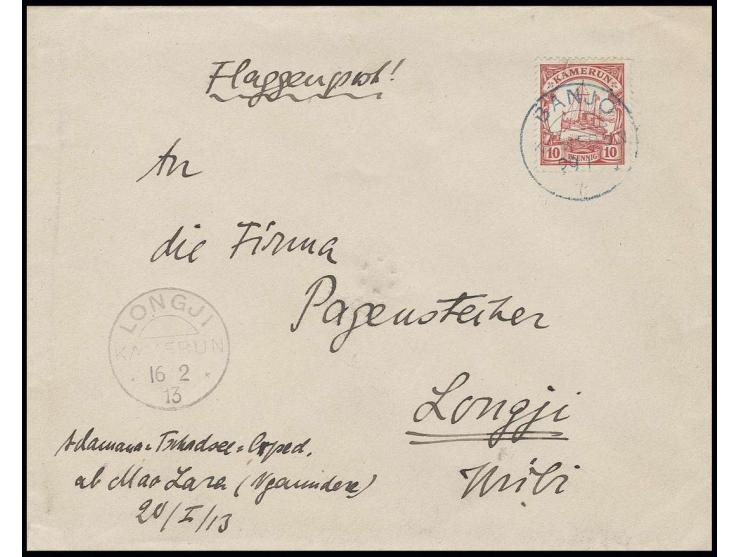 Flaggenpost!
KAMERUN
BANJO
10 PFENNIG 10
An
die Firma
Pagenstecher
LONGJI
KAMERUN
16 2
13
Longji
Adamaua = Tschadsee = Exped.
ab Mao Lara (Ngaundere)
20/I/13